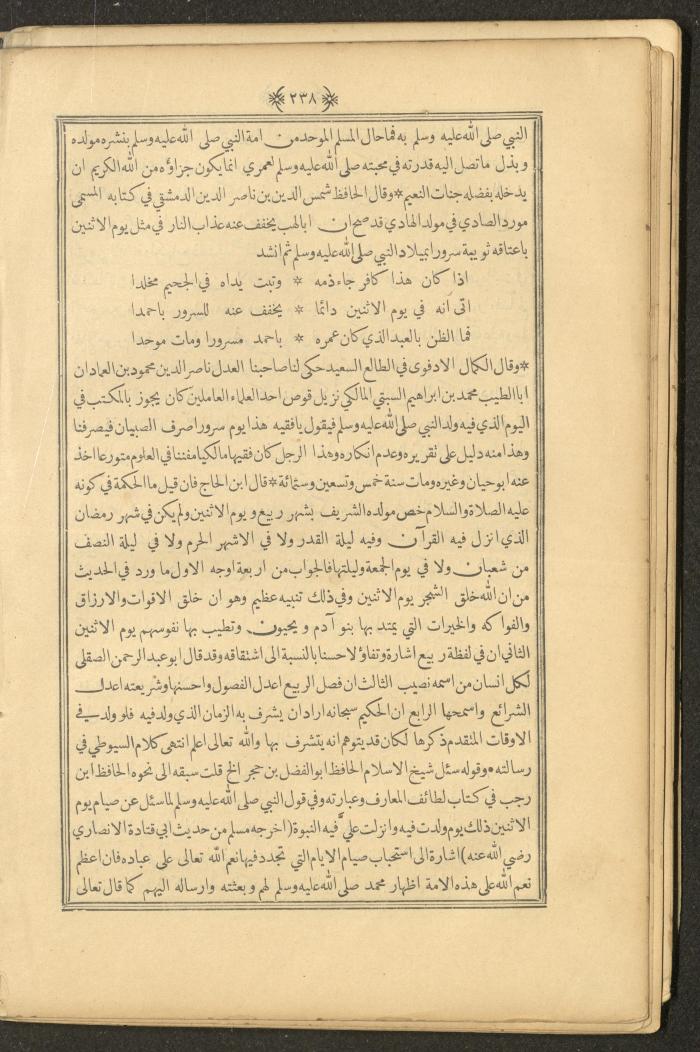 ٢٣٨
النبي صلى الله عليه وسلم به فما حال المسلم الموحد من امة النبي صلى الله عليه وسلم بنشره مولده
وبذل ما تصل اليه قدرته في محبته صلى الله عليه وسلم لعمري انما يكون جزاؤه من الله الكريم ان
يدخله بفضله جنات النعيم * وقال الحافظ شمس الدين بن ناصر الدين الدمشقي في كتابه المسمى
مورد الصادي في مولد الهادي قد صح ان ابا لهب يخفف عنه عذاب النار في مثل يوم الاثنين
باعتاقه ثويبة سرورا بميلاد النبي صلى الله عليه وسلم ثم انشد
اذا كان هذا كافر جاء ذمه * وتبت يداه في الجحيم مخلدا
اتى انه في يوم الاثنين دائما * يخفف عنه للسرور باحمدا
فما الظن بالعبد الذي كان عمره * باحمد مسرورا ومات موحدا
* وقال الكمال الادفوي في الطالع السعيد حكى لنا صاحبنا العدل ناصر الدين محمود بن العماد ان
ابا الطيب محمد بن ابراهيم السبتي المالكي نزيل قوص احد العلماء العاملين كان يجوز بالمكتب في
اليوم الذي فيه ولد النبي صلى الله عليه وسلم فيقول يا فقيه هذا يوم سرور اصرف الصبيان فيصرفنا
وهذا منه دليل على تقريره وعدم انكاره وهذا الرجل كان فقيها مالكيا مفننا في العلوم متورعا اخذ
عنه ابو حيان وغيره ومات سنة خمس وتسعين وستمائة * قال ابن الحاج فان قيل ما الحكمة في كونه
عليه الصلاة والسلام خص مولده الشريف بشهر ربيع ويوم الاثنين ولم يكن في شهر رمضان
الذي انزل فيه القرآن وفيه ليلة القدر ولا في الاشهر الحرم ولا في ليلة النصف
من شعبان ولا في يوم الجمعة وليلتها فالجواب من اربعة اوجه الاول ما ورد في الحديث
من ان الله خلق الشجر يوم الاثنين وفي ذلك تنبيه عظيم وهو ان خلق الاقوات والارزاق
والفواكه والخيرات التي يمتد بها بنو آدم ويحيون وتطيب بها نفوسهم يوم الاثنين
الثاني ان في لفظة ربيع اشارة وتفاؤلا حسنا بالنسبة الى اشتقاقه وقد قال ابو عبد الرحمن الصقلي
لكل انسان من اسمه نصيب الثالث ان فصل الربيع اعدل الفصول واحسنها وشريعته اعدل
الشرائع واسمحها الرابع ان الحكيم سبحانه اراد ان يشرف به الزمان الذي ولد فيه فلو ولد في
الاوقات المتقدم ذكرها لكان قد يتوهم انه يتشرف بها والله تعالى اعلم انتهى كلام السيوطي في
رسالته * وقوله سئل شيخ الاسلام الحافظ ابو الفضل بن حجر الخ قلت سبقه الى نحوه الحافظ ابن
رجب في كتاب لطائف المعارف وعبارته وفي قول النبي صلى الله عليه وسلم لما سئل عن صيام يوم
الاثنين ذلك يوم ولدت فيه وانزلت عليَّ فيه النبوة (اخرجه مسلم من حديث ابي قتادة الانصاري
رضي الله عنه) اشارة الى استحباب صيام الايام التي تجدد فيها نعم الله تعالى على عباده فان اعظم
نعم الله على هذه الامة اظهار محمد صلى الله عليه وسلم لهم وبعثته وارساله اليهم كما قال تعالى